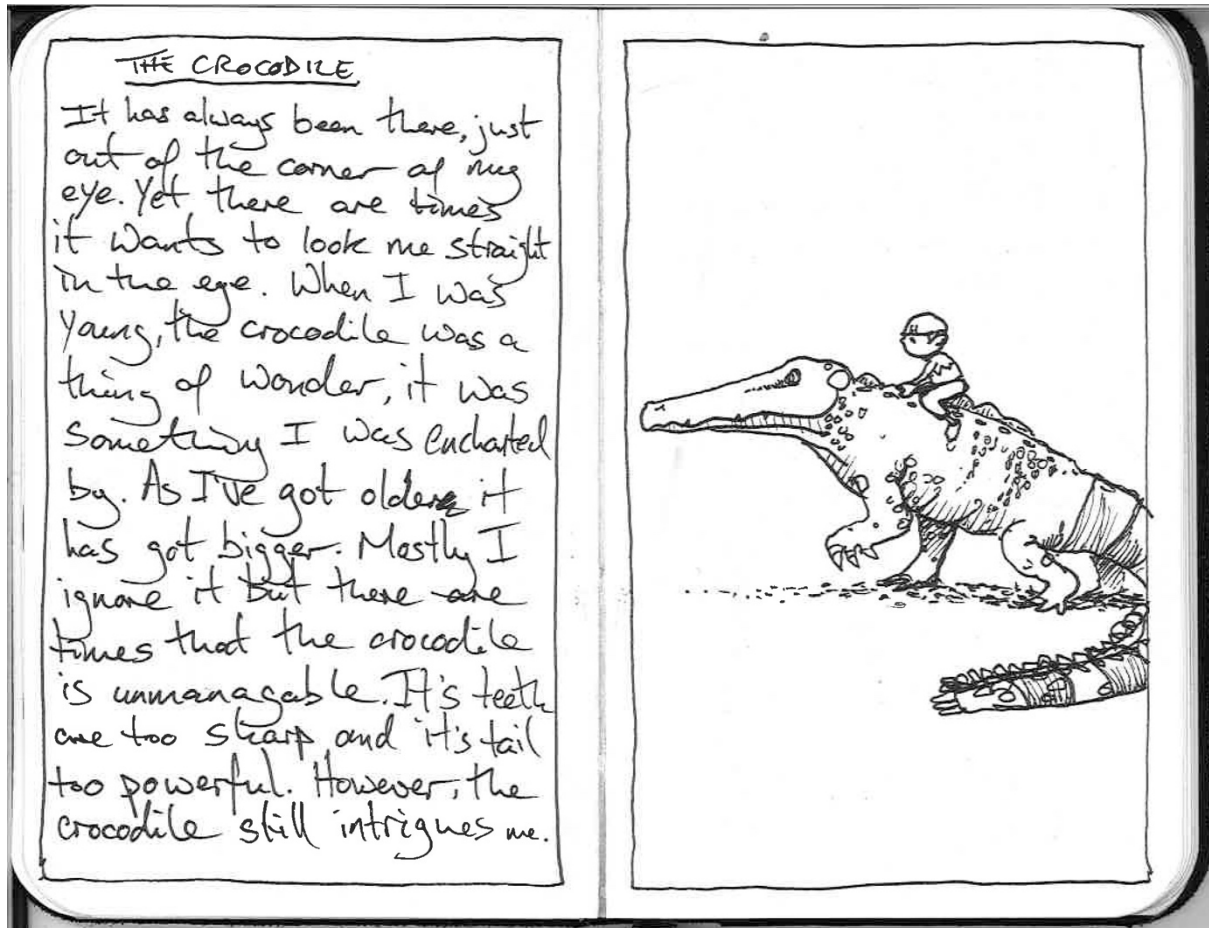 THE CROCODILE
It has always been there, just
out of the corner of my
eye. Yet there are times
it wants to look me straight
in the eye. When I was
young, the crocodile was a
thing of wonder, it was
something I was enchanted
by. As I've got older it
has got bigger. Mostly I
ignore it but there are
times that the crocodile
is unmanagable. It's teeth
are too sharp and it's tail
too powerful. However, the
crocodile still intrigues me.